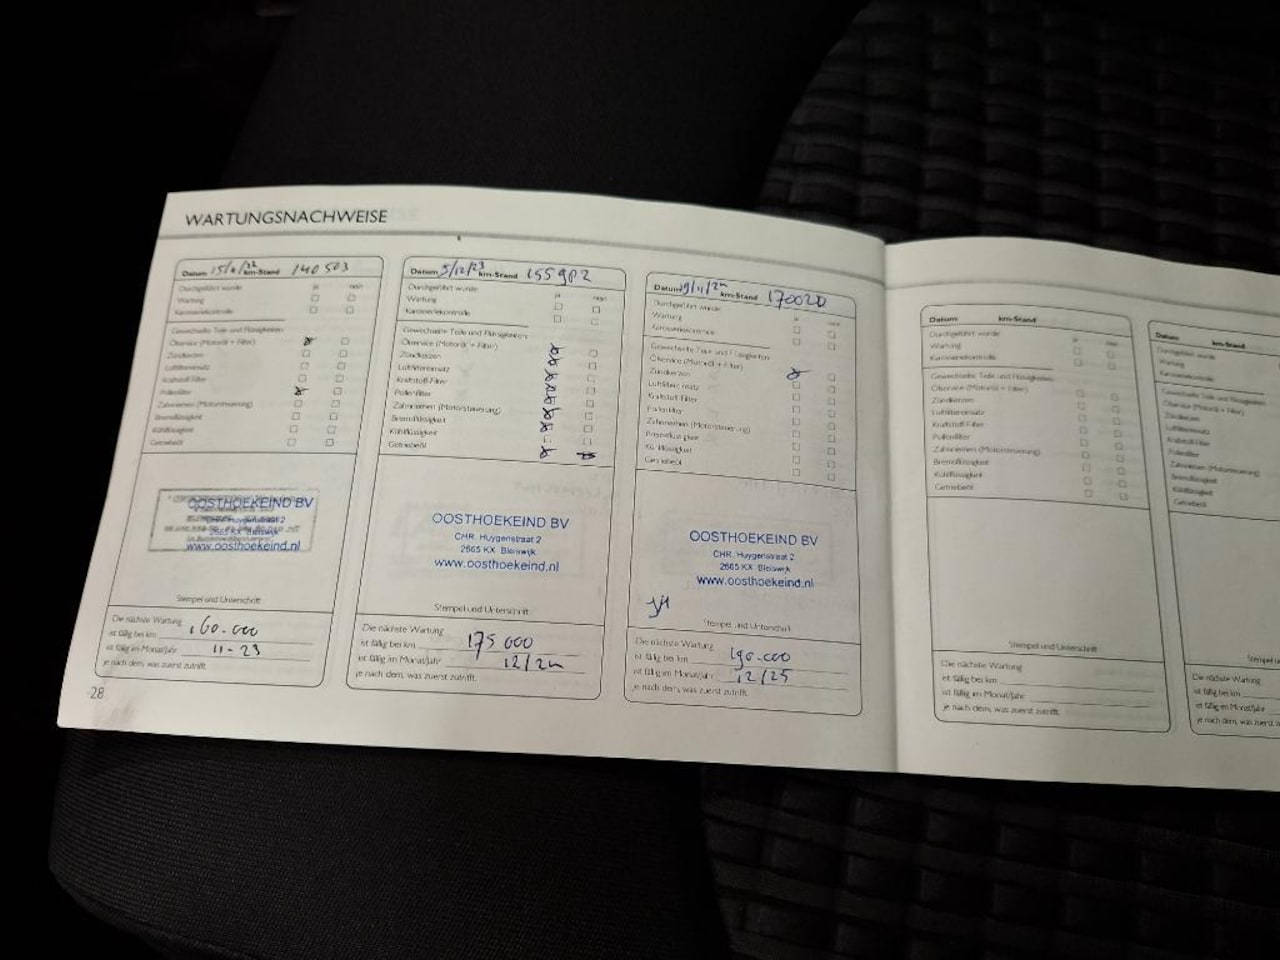 WARTUNGSNACHWEISE
Datum km-Stand 140 503
Durchgeführt wurde ja nein
Wartung
Karosseriekontrolle
Gewechselte Teile und Flüssigkeiten
Ölservice (Motoröl + Filter)
Zündkerzen
Luftfiltereinsatz
Kraftstoff-Filter
Pollenfilter
Zahnriemen (Motorsteuerung)
Bremsflüssigkeit
Kühlflüssigkeit
Getriebeöl
OOSTHOEKEIND BV
CHR. Huygenstraat 2
2665 KX Bleiswijk
www.oosthoekeind.nl
Stempel und Unterschrift
Die nächste Wartung
ist fällig bei km 160.000
ist fällig im Monat/Jahr 11-23
je nach dem, was zuerst zutrifft.
28
Datum 5/12/23 km-Stand 155982
Durchgeführt wurde ja nein
Wartung
Karosseriekontrolle
Gewechselte Teile und Flüssigkeiten
Ölservice (Motoröl + Filter)
Zündkerzen
Luftfiltereinsatz
Kraftstoff-Filter
Pollenfilter
Zahnriemen (Motorsteuerung)
Bremsflüssigkeit
Kühlflüssigkeit
Getriebeöl
OOSTHOEKEIND BV
CHR. Huygenstraat 2
2665 KX Bleiswijk
www.oosthoekeind.nl
Stempel und Unterschrift
Die nächste Wartung
ist fällig bei km 175 000
ist fällig im Monat/Jahr 12/24
je nach dem, was zuerst zutrifft.
Datum 19/11/24 km-Stand
Durchgeführt wurde ja nein
Wartung
Karosseriekontrolle
Gewechselte Teile und Flüssigkeiten
Ölservice (Motoröl + Filter)
Zündkerzen
Luftfiltereinsatz
Kraftstoff-Filter
Pollenfilter
Zahnriemen (Motorsteuerung)
Bremsflüssigkeit
Kühlflüssigkeit
Getriebeöl
OOSTHOEKEIND BV
CHR. Huygenstraat 2
2665 KX Bleiswijk
www.oosthoekeind.nl
Stempel und Unterschrift
Die nächste Wartung
ist fällig bei km 190.000
ist fällig im Monat/Jahr 12/25
je nach dem, was zuerst zutrifft.
Datum km-Stand
Durchgeführt wurde ja nein
Wartung
Karosseriekontrolle
Gewechselte Teile und Flüssigkeiten
Ölservice (Motoröl + Filter)
Zündkerzen
Luftfiltereinsatz
Kraftstoff-Filter
Pollenfilter
Zahnriemen (Motorsteuerung)
Bremsflüssigkeit
Kühlflüssigkeit
Getriebeöl
Stempel und Unterschrift
Die nächste Wartung
ist fällig bei km
ist fällig im Monat/Jahr
je nach dem, was zuerst zutrifft.
Datum km-Stand
Durchgeführt wurde
Wartung
Karosseriekontrolle
Gewechselte Teile und
Ölservice (Motoröl + Filter)
Zündkerzen
Luftfiltereinsatz
Kraftstoff-Filter
Pollenfilter
Zahnriemen (Motorsteuerung)
Bremsflüssigkeit
Kühlflüssigkeit
Getriebeöl
Stempel
Die nächste Wartung
ist fällig bei km
ist fällig im Monat/Jahr
je nach dem, was zuerst